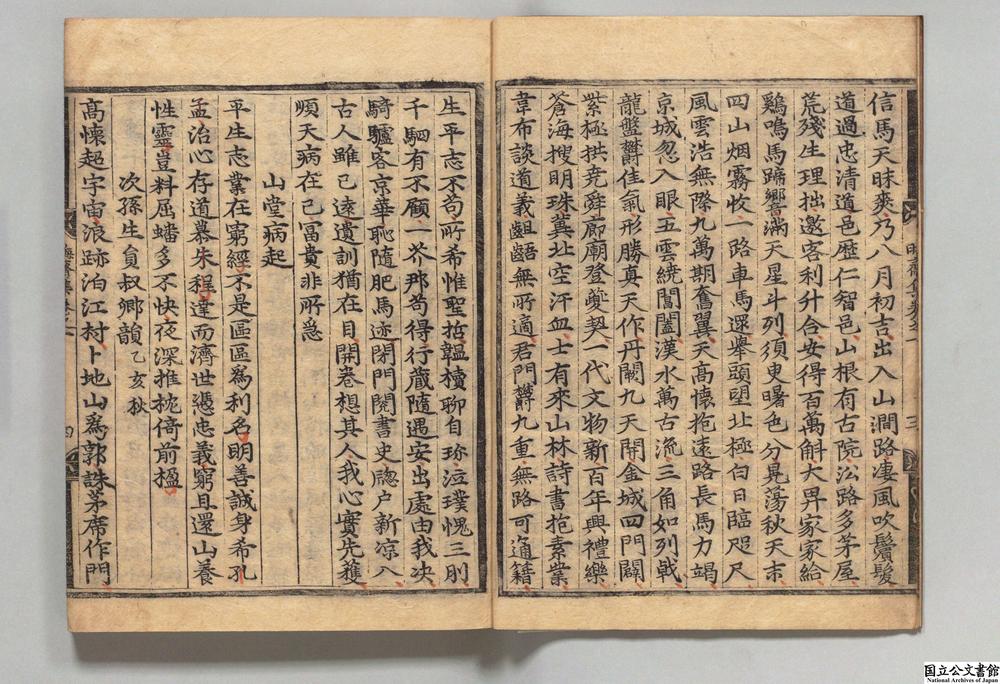 信馬天昧爽乃八月初吉出入山澗路凄風吹鬢髮
道過忠清道邑歷仁智邑山根有古院沿路多茅屋
荒殘生理拙邀客利升合安得百萬斛大畀家家給
鷄鳴馬蹄響滿天星斗列須臾曙色分晃蕩秋天末
四山烟霧收一路車馬還舉頭望北極白日臨咫尺
風雲浩無際九萬期奮翼天高懷抱遠路長馬力竭
京城忽入眼五雲繞閶闔漢水萬古流三角如列戟
龍盤欝佳氣形勝真天作丹闕九天開金城四門闢
紫極拱堯舜廊廟登夔契一代文物新百年興禮樂
蒼海搜明珠冀北空汗血士有來山林詩書抱素業
韋布談道義齟齬無所適君門欝九重無路可通籍
三
生平志不苟所希惟聖哲韞櫝聊自珎泣璞愧三刖
千駟有不顧一芥那苟得行藏隨遇安出處由我决
騎驢客京華恥隨肥馬迹閉門閱書史牕户新凉入
古人雖已遠遺訓猶在目開卷想其人我心實先獲
順天病在己冨貴非所急
山堂病起
平生志業在窮經不是區區爲利名明善誠身希孔
孟治心存道慕朱程達而濟世憑忠義窮且還山養
性靈豈料屈蟠多不快夜深推枕倚前楹
次孫生員叔卿韻乙亥秋
高懷起宇宙浪跡泊江村卜地山爲郭誅茅席作門
四
国立公文書館
National Archives of Japan